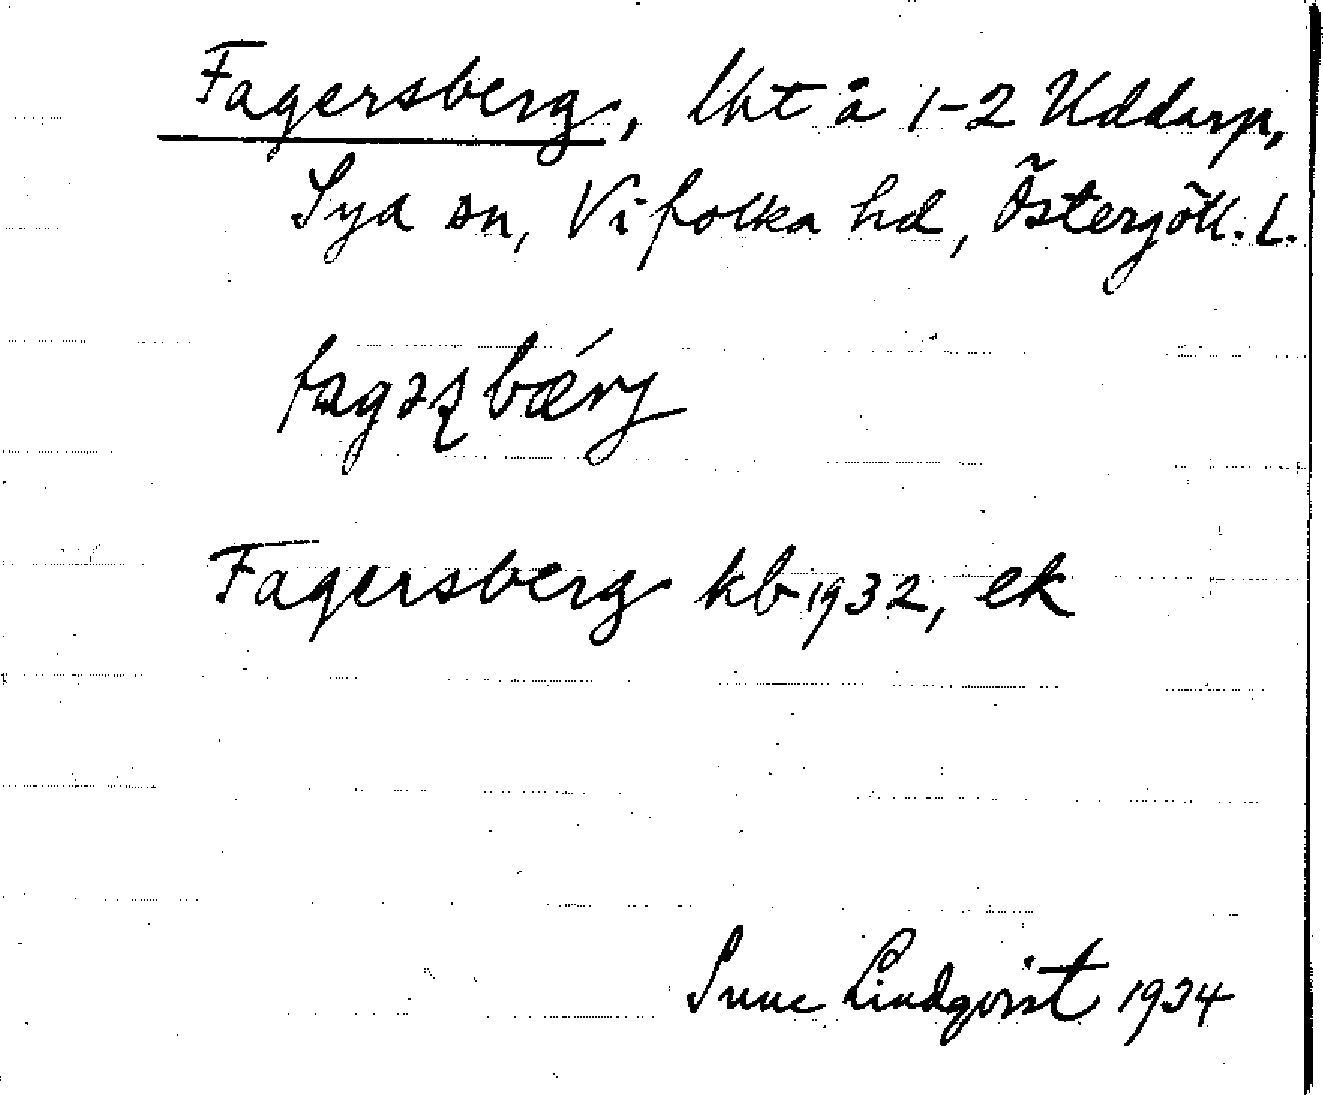 Fagersberg, lht å 1-2 Uddarp,
Sya sn, Vifolka hd, Östergötl. L.
fagəʂbǽrj
Fagersberg kb 1932, ek
Sune Lindqvist 1934